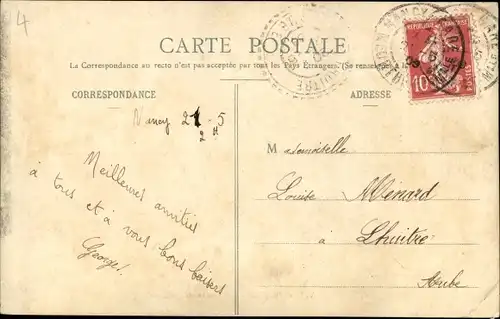 4
CARTE POSTALE
La Correspondance au recto n'est pas acceptée par tous les Pays Étrangers. (Se renseigner à la
CORRESPONDANCE
ADRESSE
RÉPUBLIQUE FRANÇAISE
10
POSTES
Nancy 21 5
Meilleures amitiés
à tous et à vous bons baisers
George.
Mademoiselle
Louise Ménard
à Lhuitre
Aube